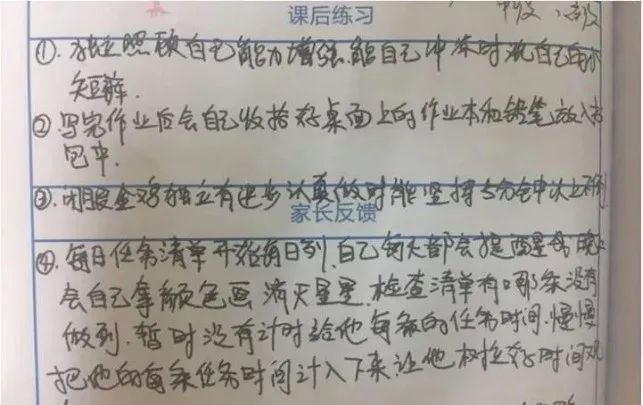 课后练习
①.独立照顾自己能力增强.能自己冲凉时洗自己的小
短裤.
②写完作业后会自己收拾好桌面上的作业本和铅笔放入书
包中.
③.闭眼金鸡独立有进步认真做时能坚持5分钟以上
家长反馈
④.每日任务清单开始每日列.自己每天都会提醒
会自己拿颜色画满天星星.检查清单有哪条没有
做到.暂时没有计时给他每条的任务时间.慢慢
把他的每条任务时间计入下来让他树拉好时间观